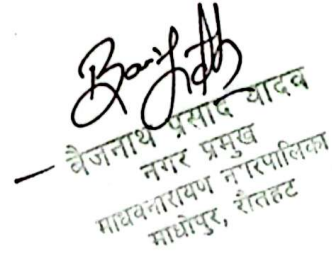 बैजनाथ प्रसाद यादव
नगर प्रमुख
माधवनारायण नगरपालिका
माधोपुर, रौतहट